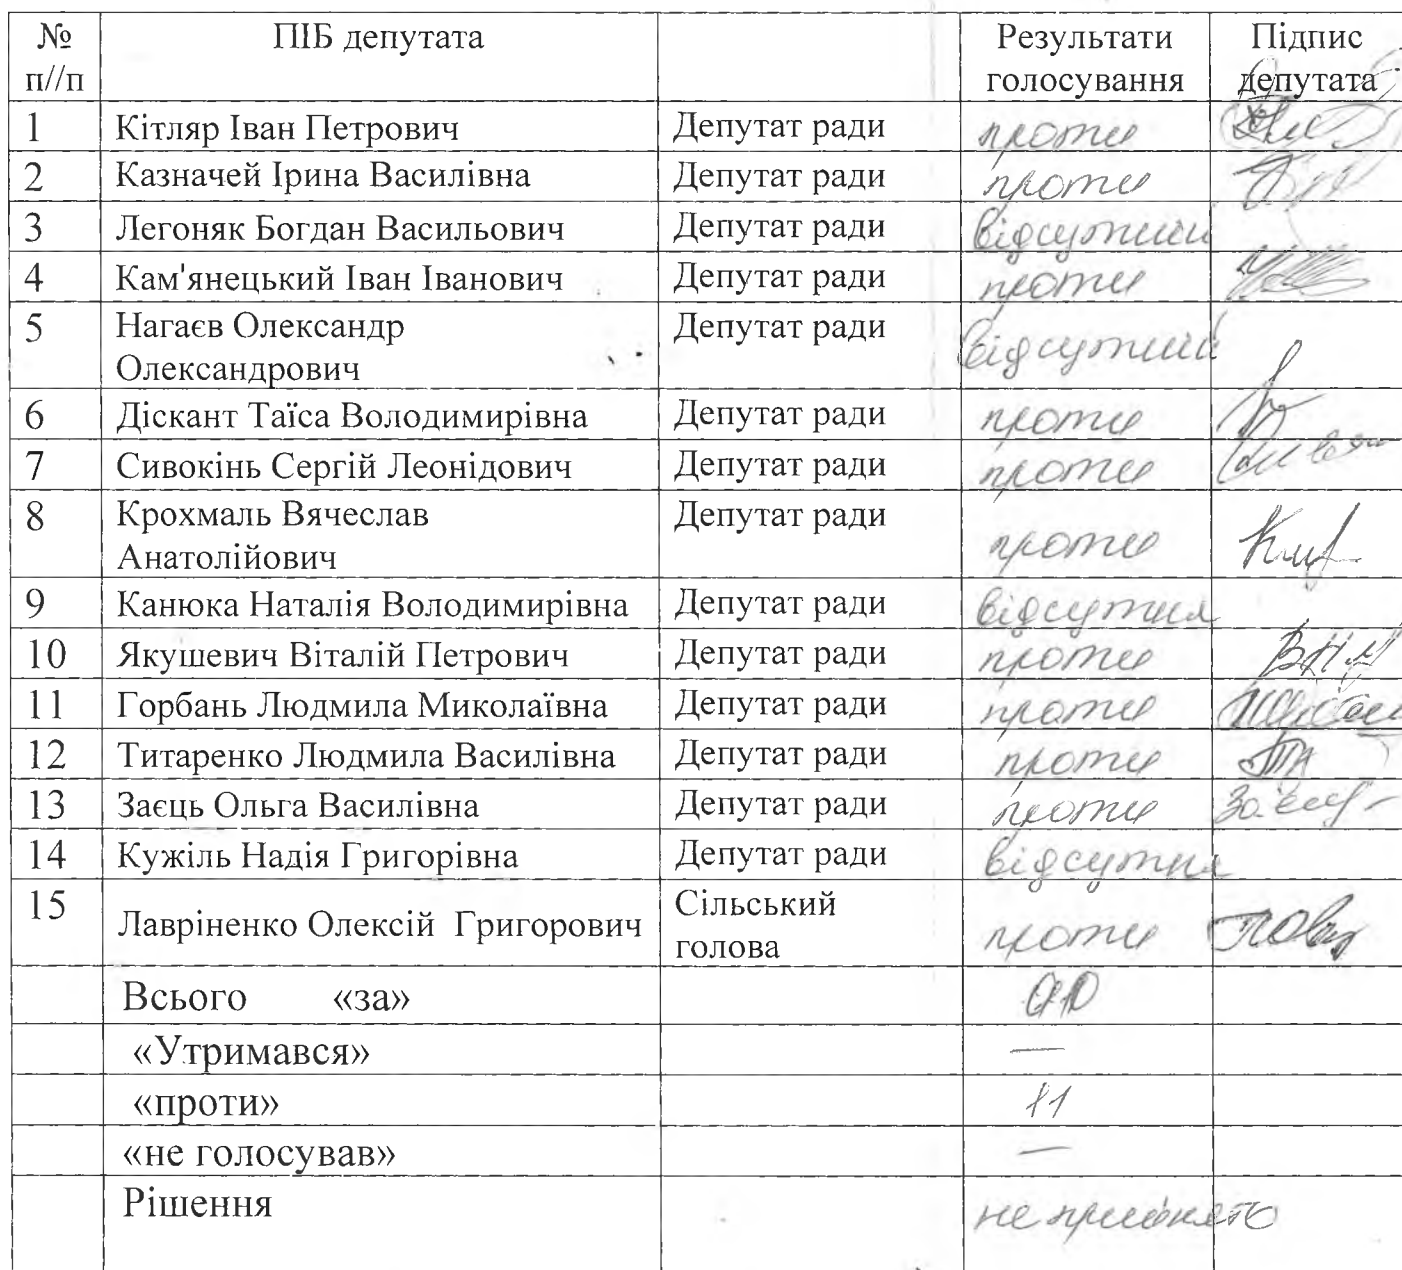 № ПІБ депутата Результати Підпис
п//п голосування депутата
1 Кітляр Іван Петрович Депутат ради проти
2 Казначей Ірина Василівна Депутат ради проти
3 Легоняк Богдан Васильович Депутат ради відсутній
4 Кам'янецький Іван Іванович Депутат ради проти
5 Нагаєв Олександр Депутат ради відсутній
Олександрович
6 Діскант Таїса Володимирівна Депутат ради проти
7 Сивокінь Сергій Леонідович Депутат ради проти
8 Крохмаль Вячеслав Депутат ради проти
Анатолійович
9 Канюка Наталія Володимирівна Депутат ради відсутня
10 Якушевич Віталій Петрович Депутат ради проти
11 Горбань Людмила Миколаївна Депутат ради проти
12 Титаренко Людмила Василівна Депутат ради проти
13 Заєць Ольга Василівна Депутат ради проти
14 Кужіль Надія Григорівна Депутат ради відсутня
15 Лавріненко Олексій Григорович Сільський проти
голова
Всього «за»
«Утримався» —
«проти» 11
«не голосував» —
Рішення не прийнято